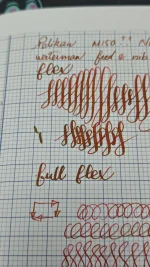 Pelikan M150
waterman feed & nib
flex
full flex